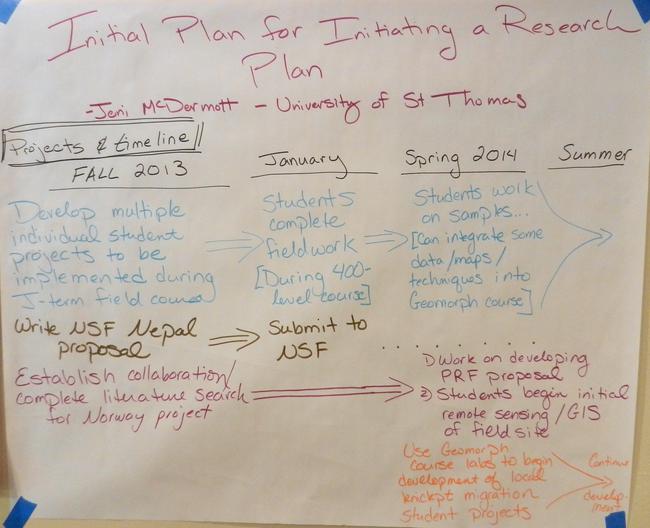 Initial Plan for Initiating a Research
Plan
-Jeni McDermott - University of St Thomas
Projects & timeline
FALL 2013
January
Spring 2014
Summer
Develop multiple
individual student
projects to be
implemented during
J-term field course
Students
complete
fieldwork
[During 400-
level course]
Students work
on samples...
[Can integrate some
data/maps/
techniques into
Geomorph course]
Write NSF Nepal
proposal
Submit to
NSF
. . . . . . . .
Establish collaboration/
complete literature search
for Norway project
1) Work on developing
PRF proposal
2) Students begin initial
remote sensing/GIS
of field site
Use Geomorph
course labs to begin
development of local
knickpt migration
student projects
Continue
develop-
ment